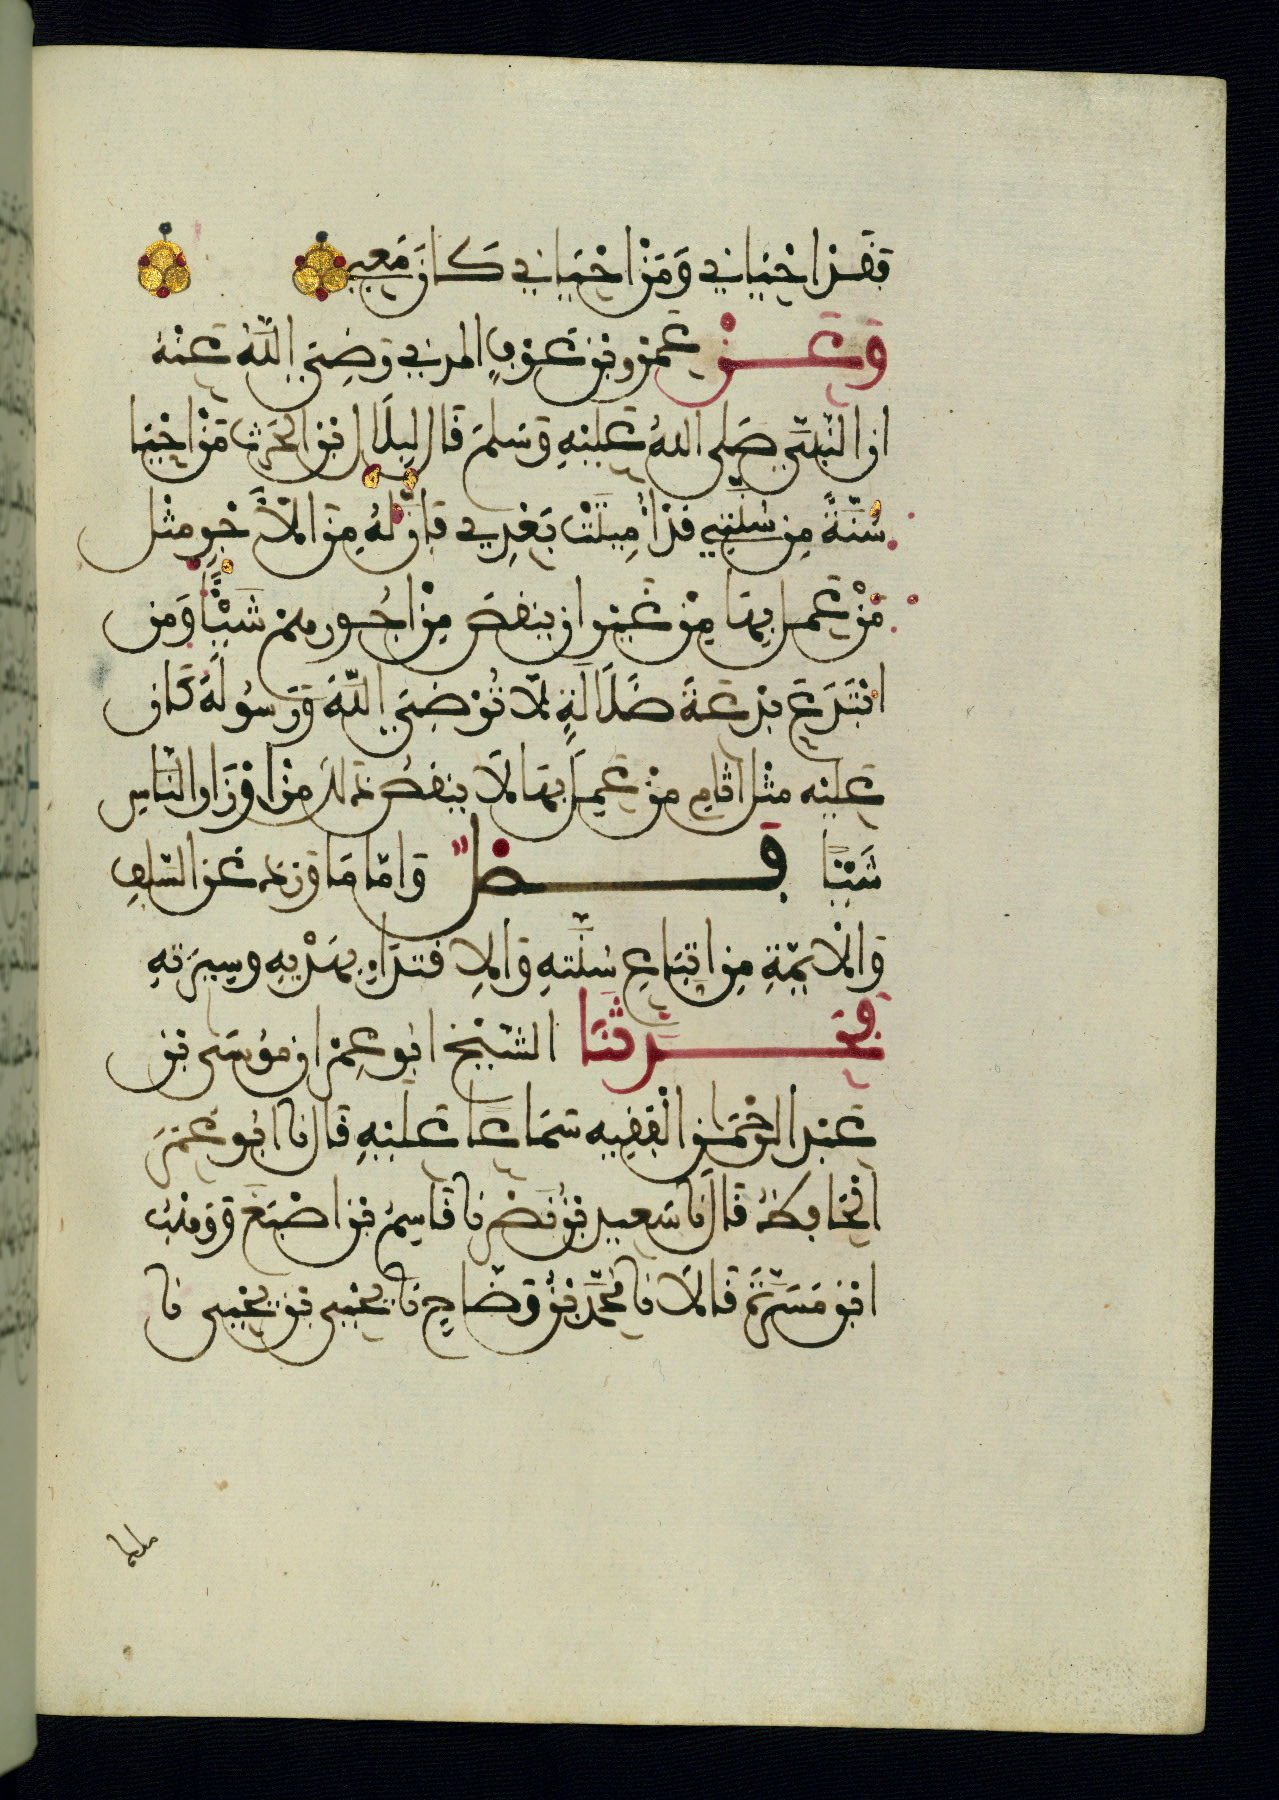 فقد احياني ومن احياني كان معي
وعن عمرو بن عوف المزني رضي الله عنه
ان النبي صلى الله عليه وسلم قال لبلال بن الحرث من احيا
سنة من سنتي قد اميتت بعدي فان له من الاجر مثل
من عمل بها من غير ان ينقص من اجورهم شيئا ومن
ابتدع بدعة ضلالة لا ترضي الله ورسوله كان
عليه مثل اثام من عمل بها لا ينقص ذلك من اوزار الناس
شيئا فصل واما ما ورد عن السلف
والايمة من اتباع سنته والاقتداء بهديه وسيرته
فحدثنا الشيخ ابو عمران موسى بن
عبد الرحمن الفقيه سماعا عليه قال نا ابو عمر
الحافظ قال نا سعيد بن نصر نا قاسم بن اصبغ ووهب
ابن مسرة قالا نا محمد بن وضاح نا يحيى بن يحيى نا
ملك